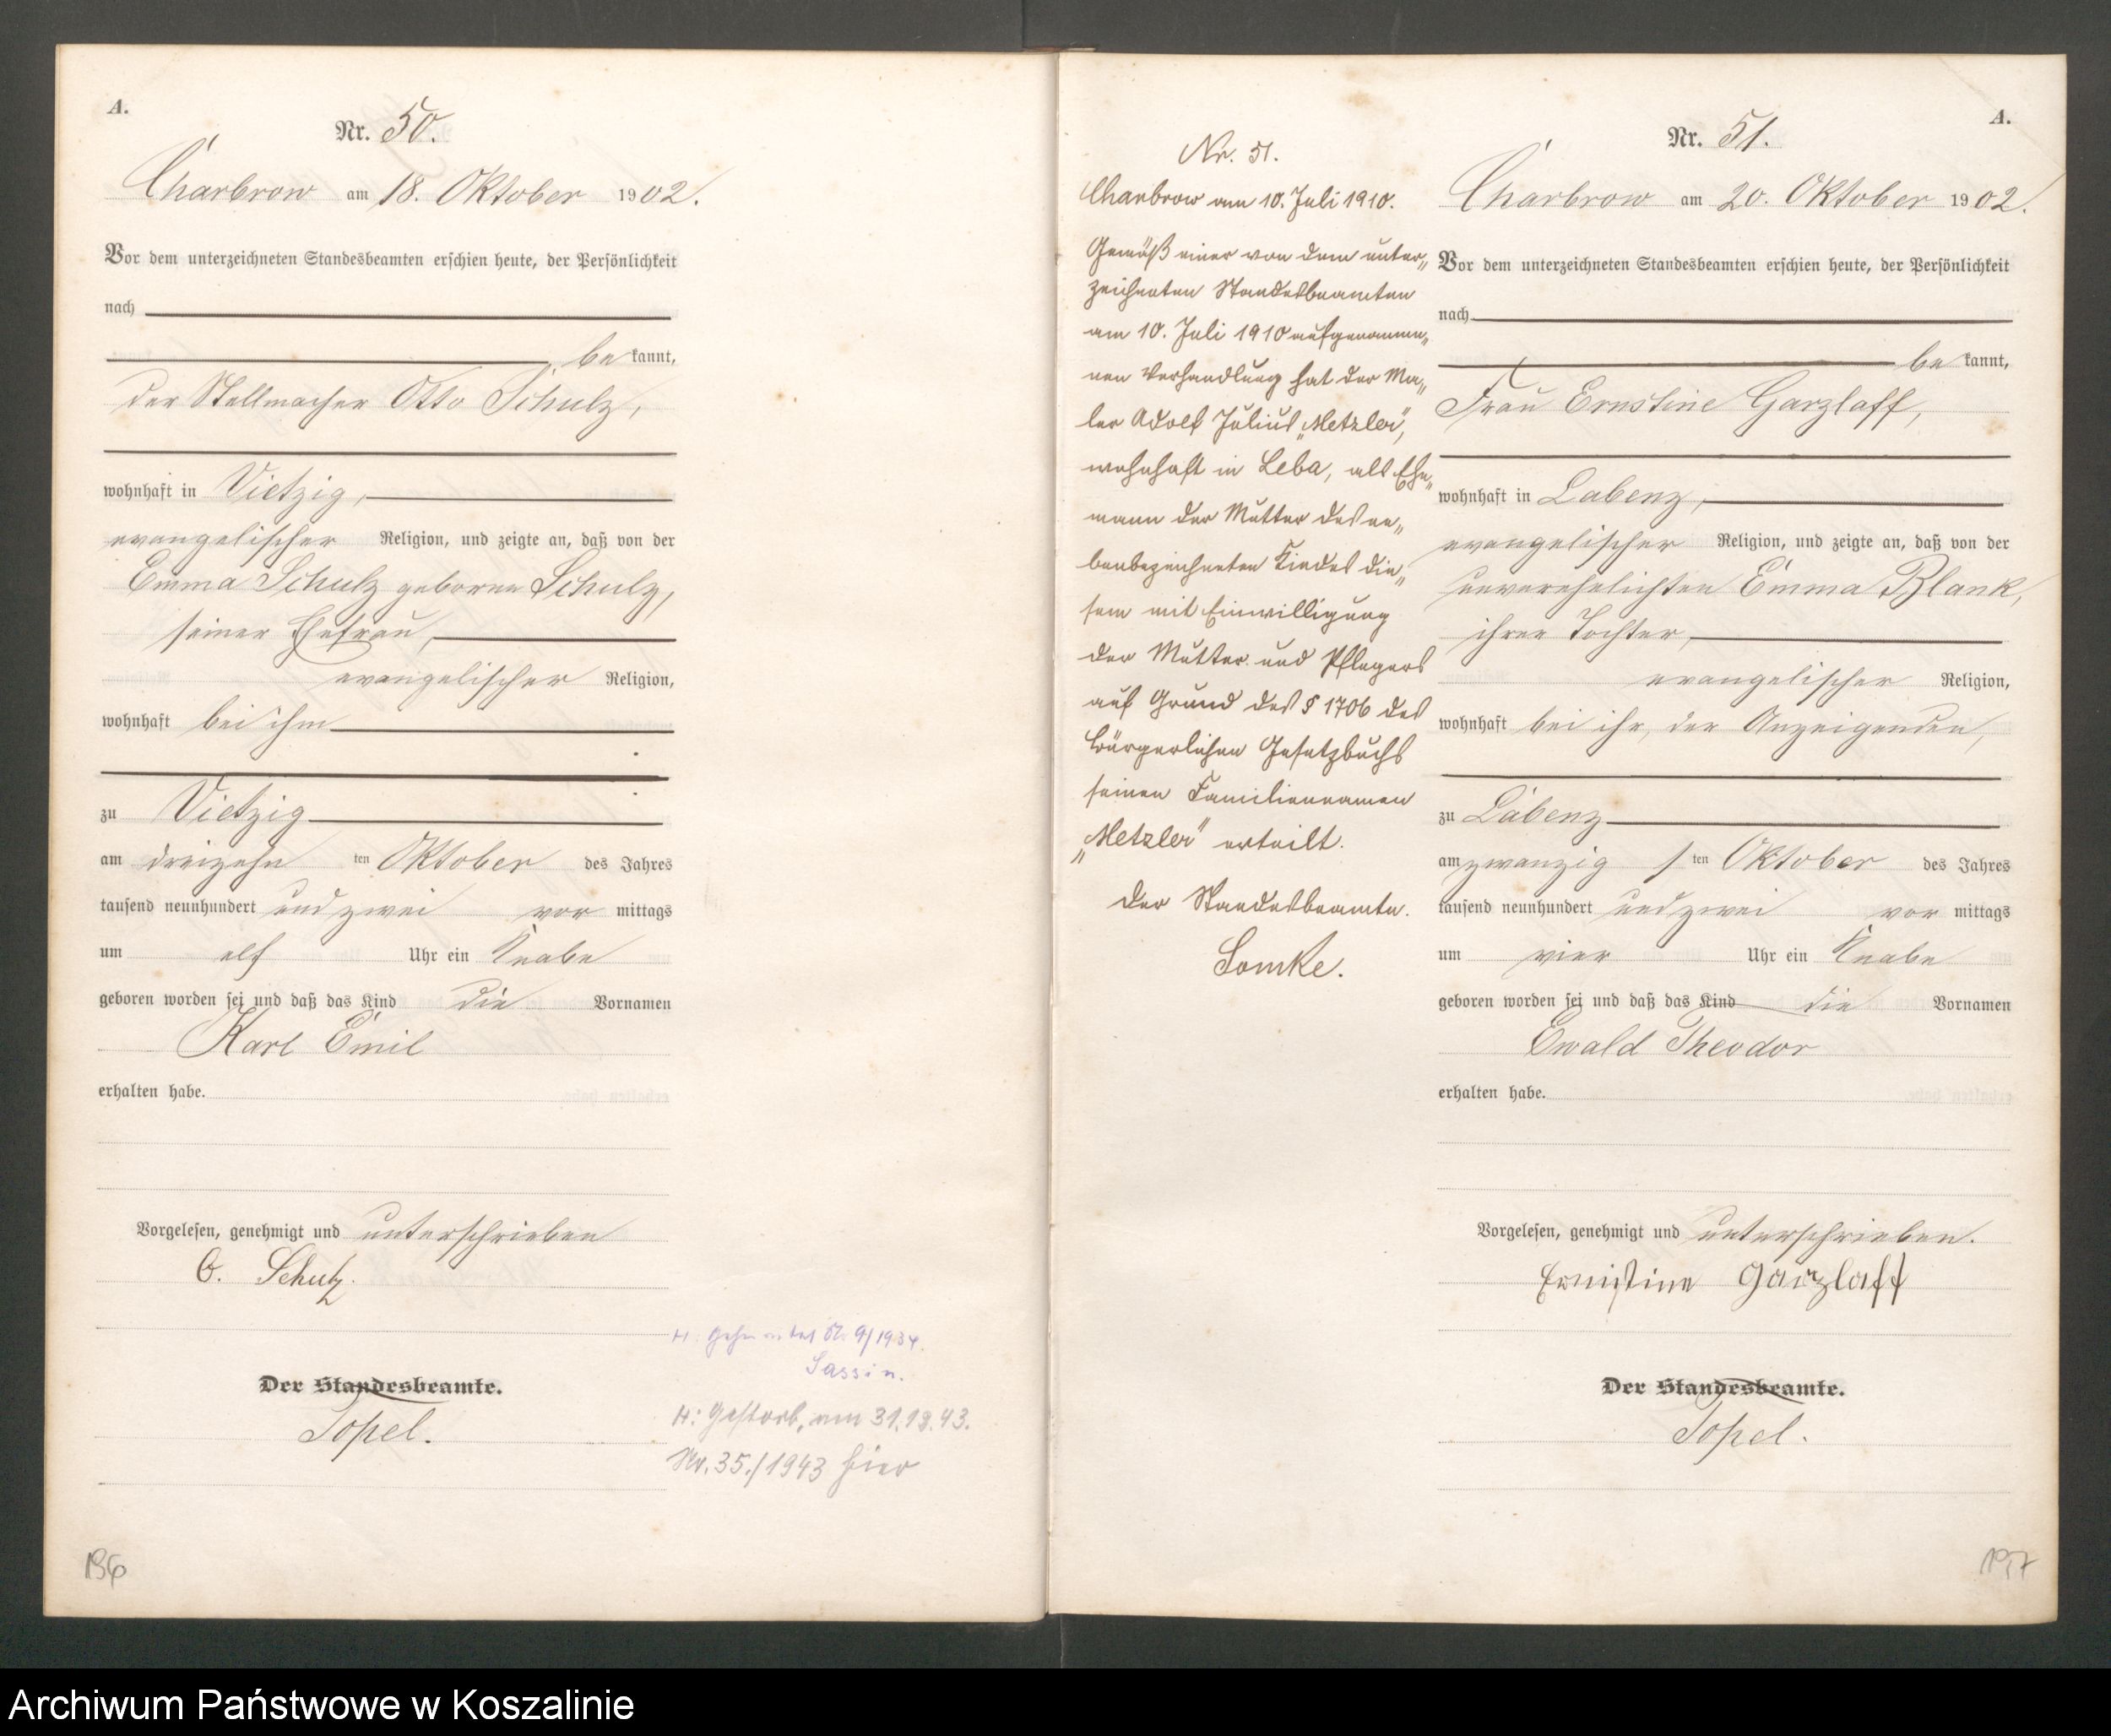 A.
Nr. 50.
Charbrow am 18. Oktober 1902.
Vor dem unterzeichneten Standesbeamten erschien heute, der Persönlichkeit
nach
be kannt,
der Stellmacher Otto Schulz,
wohnhaft in Vietzig,
evangelischer Religion, und zeigte an, daß von der
Emma Schulz geborne Schulz,
seiner Ehefrau,
evangelischer Religion,
wohnhaft bei ihm
zu Vietzig
am dreizehn ten Oktober des Jahres
tausend neunhundert und zwei vor mittags
um elf Uhr ein Knabe
geboren worden sei und daß das Kind die Vornamen
Karl Emil
erhalten habe.
Vorgelesen, genehmigt und unterschrieben
O. Schulz.
Der Standesbeamte.
Topel.
H: Nr. 9/1934.
Sassin.
H: Gestorb. am 31.12.43.
Nr. 35./1943 hier
196
Nr. 51.
Charbrow am 10. Juli 1910.
Gemäß einer von dem unter„
zeichneten Standesbeamten
am 10. Juli 1910 aufgenomme„
nen Verhandlung hat der Ma„
ler Adolf Julius „Metzler",
wohnhaft in Leba, als Ehe„
mann der Mutter des ne„
benbezeichneten Kindes die„
sem mit Einwilligung
der Mutter und Pflegers
auf Grund des § 1706 des
Bürgerlichen Gesetzbuchs
seinen Familiennamen
„Metzler" erteilt.
Der Standesbeamte.
Lomke.
A.
Nr. 51.
Charbrow am 20. Oktober 1902.
Vor dem unterzeichneten Standesbeamten erschien heute, der Persönlichkeit
nach
be kannt,
Frau Ernstine Garzlaff,
wohnhaft in Labenz,
evangelischer Religion, und zeigte an, daß von der
unverehelichten Emma Blank,
ihrer Tochter,
evangelischer Religion,
wohnhaft bei ihr, der Anzeigenden,
zu Labenz
am zwanzig s ten Oktober des Jahres
tausend neunhundert und zwei vor mittags
um vier Uhr ein Knabe
geboren worden sei und daß das Kind die Vornamen
Ewald Theodor
erhalten habe.
Vorgelesen, genehmigt und unterschrieben.
Ernistine Garzlaff
Der Standesbeamte.
Topel.
197
Archiwum Państwowe w Koszalinie